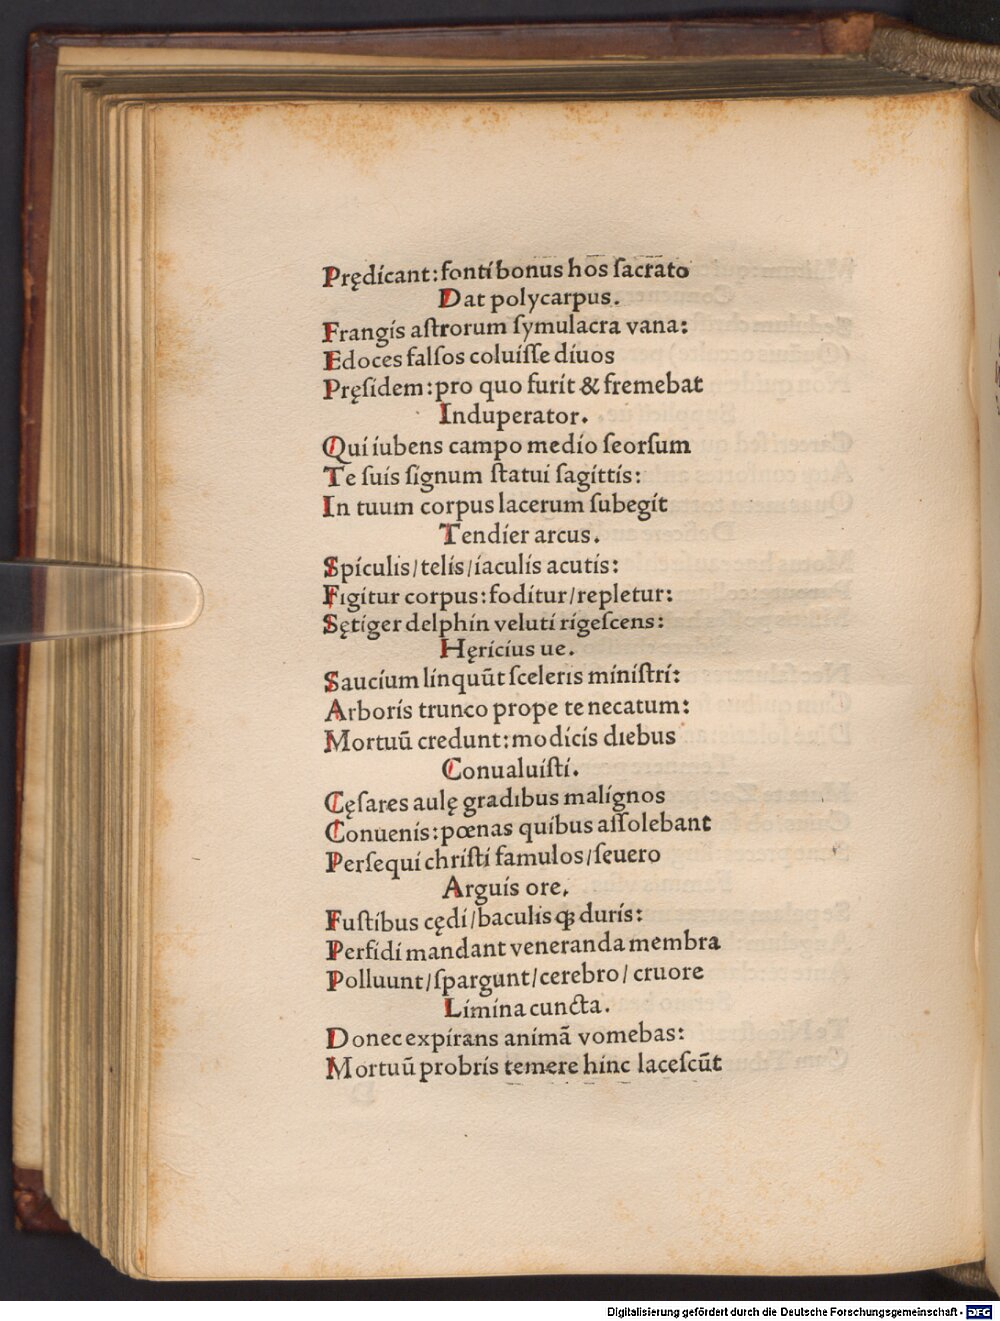 Prędicant: fonti bonus hos ſacrato
Dat polycarpus.
Frangis aſtrorum ſymulacra vana:
Edoces falſos coluiſſe diuos
Pręſidem: pro quo furit & fremebat
Induperator.
Qui iubens campo medio ſeorſum
Te ſuis ſignum ſtatui ſagittis:
In tuum corpus lacerum ſubegit
Tendier arcus.
Spiculis/telis/iaculis acutis:
Figitur corpus: foditur/repletur:
Sętiger delphin veluti rigeſcens:
Hęricius ue.
Saucium linquūt ſceleris miniſtri:
Arboris trunco prope te necatum:
Mortuū credunt: modicis diebus
Conualuiſti.
Cęſares aulę gradibus malignos
Conuenis: pœnas quibus aſſolebant
Perſequi chriſti famulos/ſeuero
Arguis ore.
Fuſtibus cędi/baculis qꝫ duris:
Perfidi mandant veneranda membra
Polluunt/ſpargunt/cerebro/cruore
Limina cuncta.
Donec expirans animā vomebas:
Mortuū probris temere hinc laceſcūt
Digitalisierung gefördert durch die Deutsche Forschungsgemeinschaft - DFG